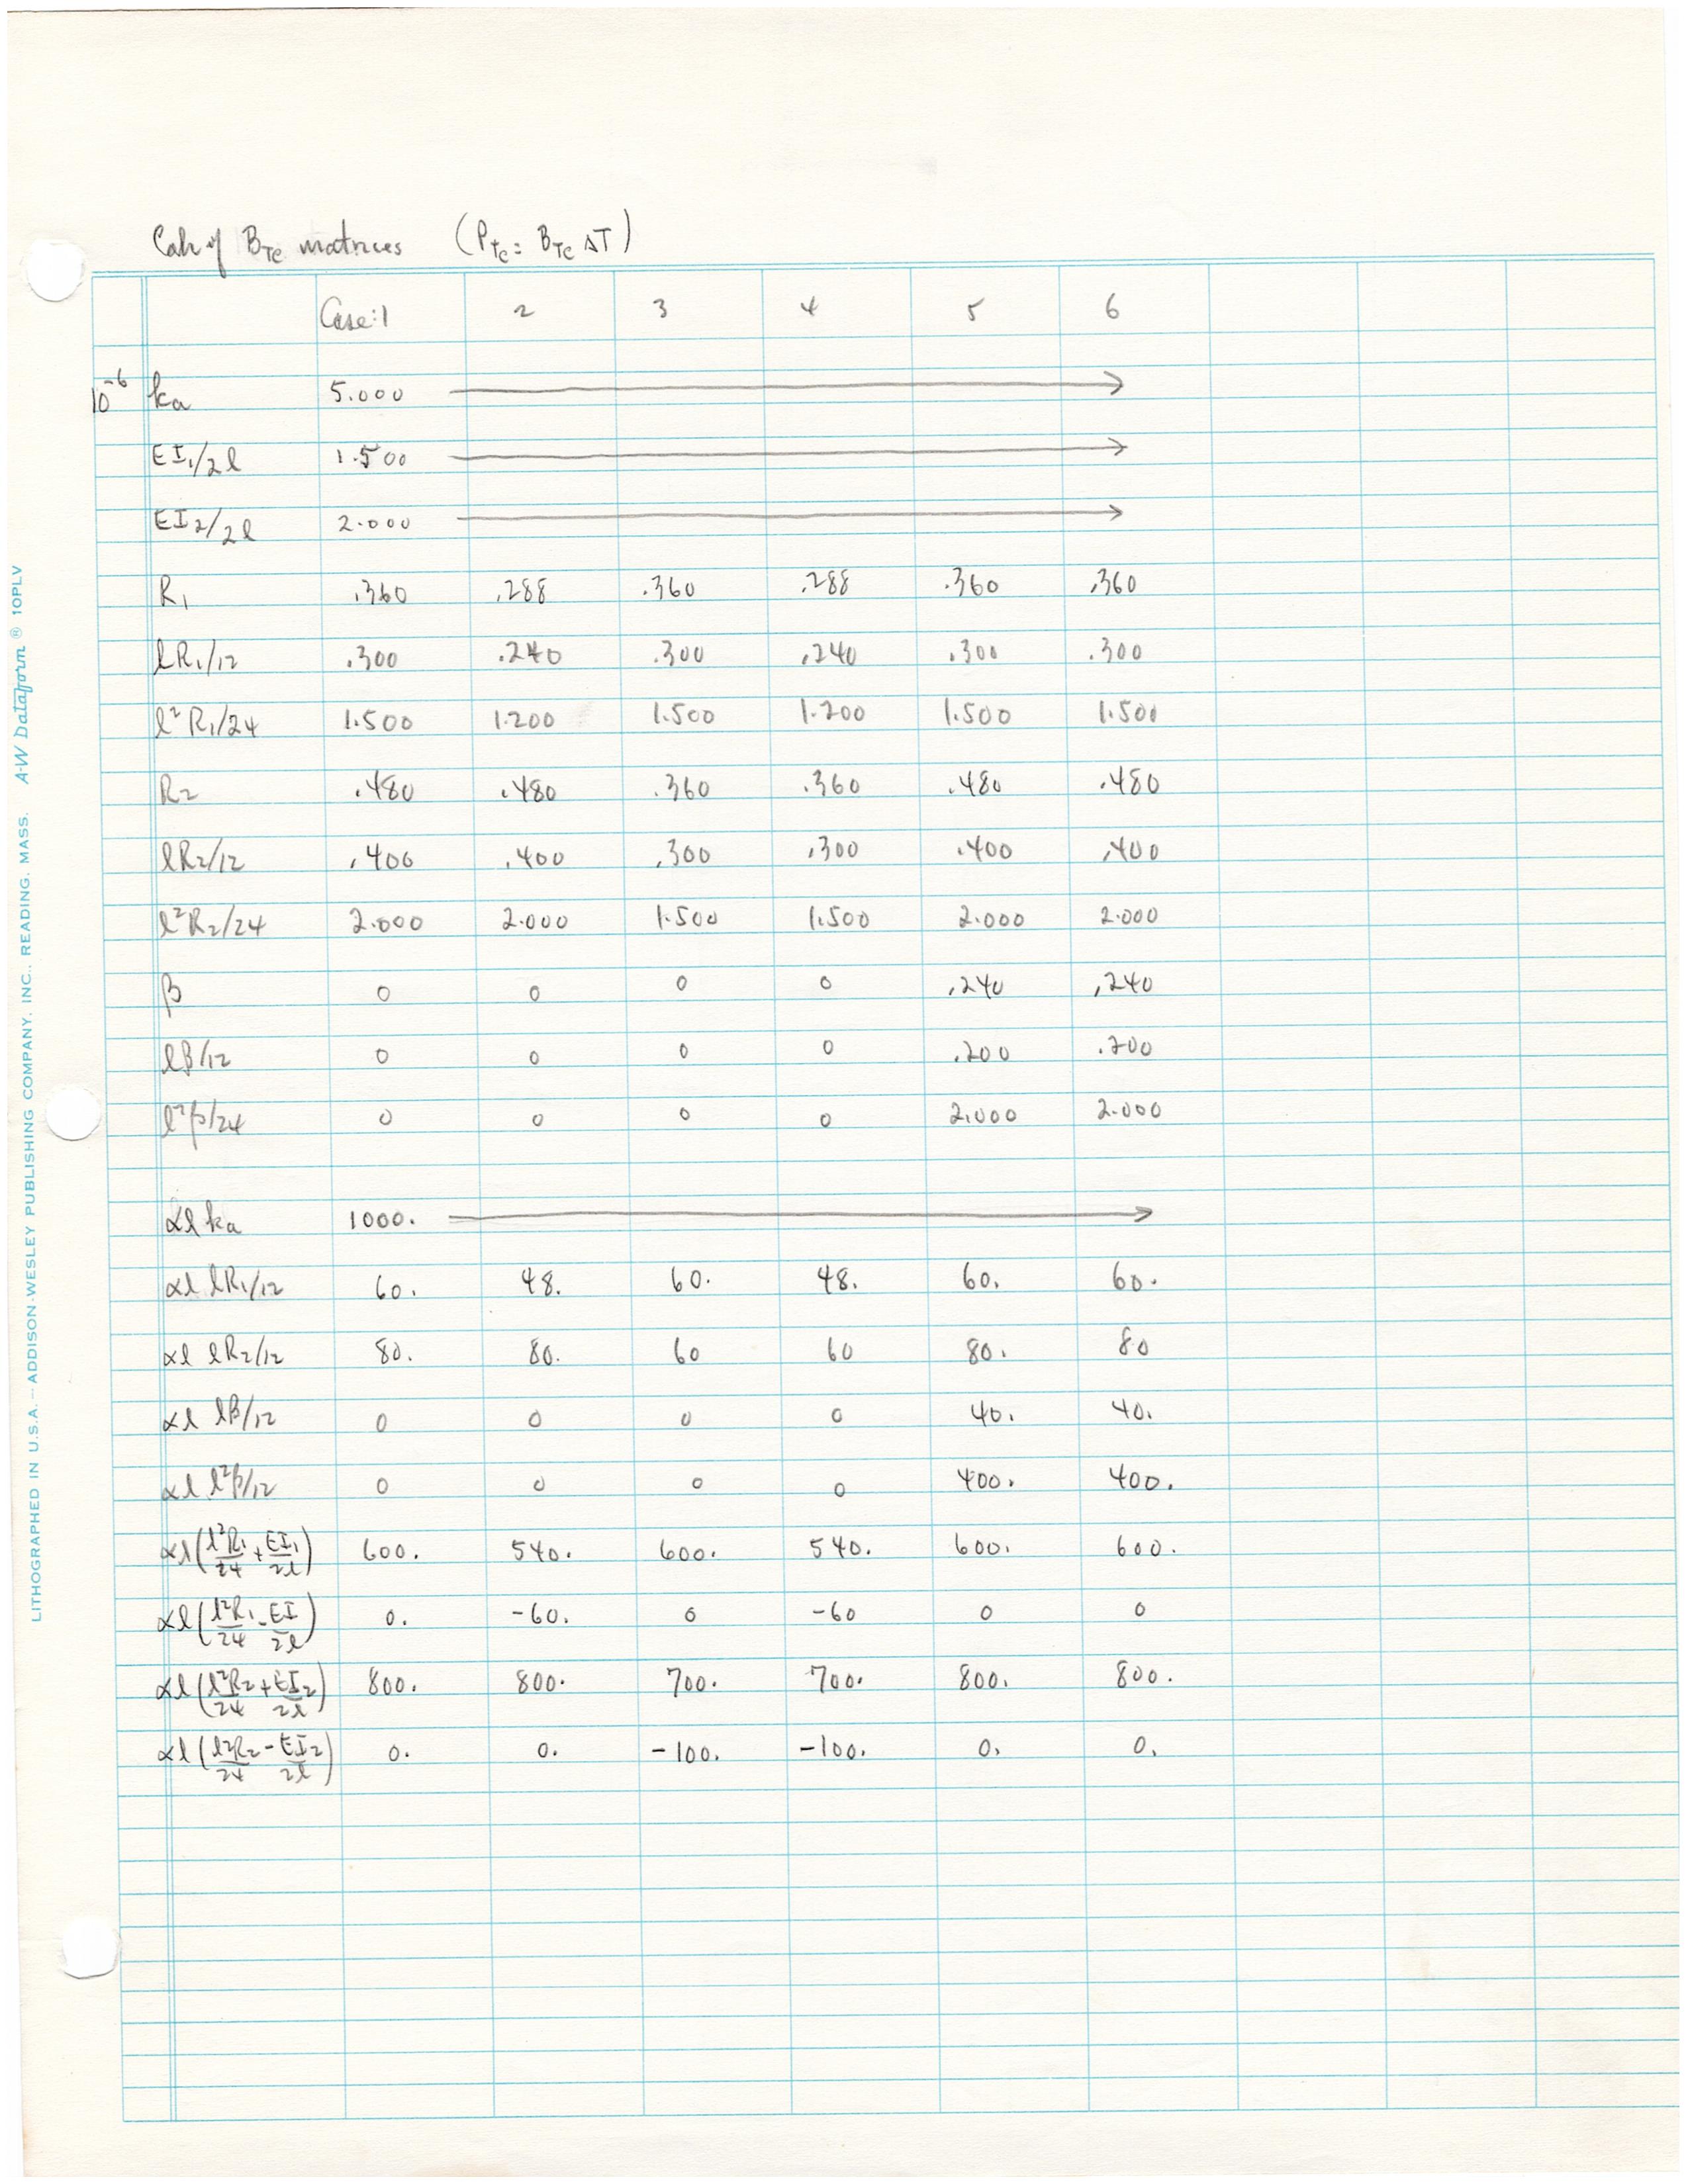 Calc of B_TC matrices (P_tc = B_TC ΔT)
Case:1 2 3 4 5 6
10^-6 ka 5.000 →
EI₁/2l 1.500 →
EI₂/2l 2.000 →
R₁ .360 .288 .360 .288 .360 .360
lR₁/12 .300 .240 .300 .240 .300 .300
l²R₁/24 1.500 1.200 1.500 1.200 1.500 1.500
R₂ .480 .480 .360 .360 .480 .480
lR₂/12 .400 .400 .300 .300 .400 .400
l²R₂/24 2.000 2.000 1.500 1.500 2.000 2.000
β 0 0 0 0 .240 .240
lβ/12 0 0 0 0 .200 .200
l²β/24 0 0 0 0 2.000 2.000
αl ka 1000. →
αl lR₁/12 60. 48. 60. 48. 60. 60.
αl lR₂/12 80. 80. 60 60 80. 80
αl lβ/12 0 0 0 0 40. 40.
αl l²β/12 0 0 0 0 400. 400.
αl(l²R₁/24 + EI₁/2l) 600. 540. 600. 540. 600. 600.
αl(l²R₁/24 - EI/2l) 0. -60. 0 -60 0 0
αl(l²R₂/24 + EI₂/2l) 800. 800. 700. 700. 800. 800.
αl(l²R₂/24 - EI₂/2l) 0. 0. -100. -100. 0. 0.
LITHOGRAPHED IN U.S.A. — ADDISON-WESLEY PUBLISHING COMPANY, INC., READING, MASS. A-W Dataform ® 10PLV